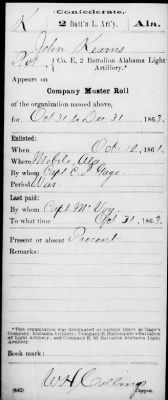 Confederate.
K 2 Batt'n L. Art'y. Ala.
John Kearns
Pvt, Co. E, 2 Battalion Alabama Light
Artillery.*
Appears on
Company Muster Roll
of the organization named above,
for Oct 31 to Dec 31, 1863.
Enlisted:
When Oct 10, 1861.
Where Mobile Ala
By whom Capt C. P. Gage
Period War
Last paid:
By whom Capt McVoy
To what time Oct 31, 1863.
Present or absent Present
Remarks:
*This organization was designated at various times as Gage's
Company, Alabama Artillery; Company E, Battalion
of Light Artillery; and Company E, 2d Battalion Alabama Light
Artillery.
Book mark:
W H Collins
(642) Copyist.